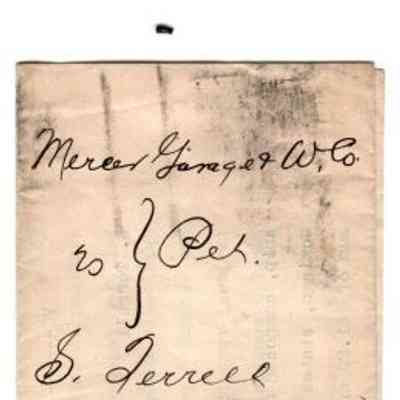 Mercer Garage & W. Co.
vs } Pet.
S. Terrell